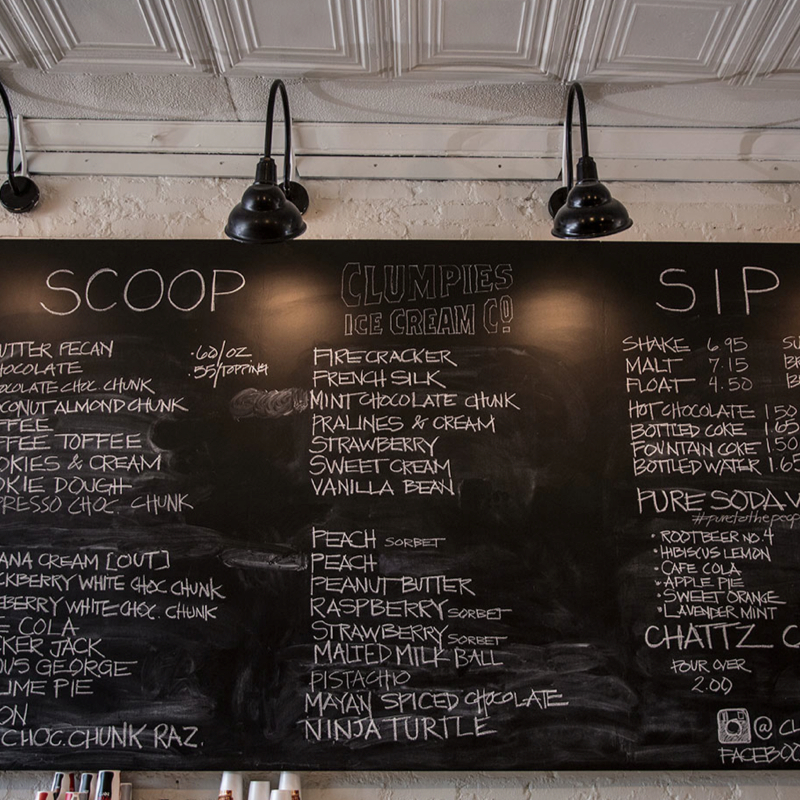 SCOOP
UTTER PECAN
HOCOLATE
OCOLATE CHOC. CHUNK
CONUT ALMOND CHUNK
FFEE
FFEE TOFFEE
OKIES & CREAM
OKIE DOUGH
PRESSO CHOC. CHUNK
ANA CREAM [OUT]
CKBERRY WHITE CHOC CHUNK
EBERRY WHITE CHOC. CHUNK
E COLA
KER JACK
OUS GEORGE
LIME PIE
ON
CHOC. CHUNK RAZ.
.60/OZ
.55/TOPPING
CLUMPIES
ICE CREAM CO
FIRECRACKER
FRENCH SILK
MINT CHOCOLATE CHUNK
PRALINES & CREAM
STRAWBERRY
SWEET CREAM
VANILLA BEAN
PEACH SORBET
PEACH
PEANUT BUTTER
RASPBERRY SORBET
STRAWBERRY SORBET
MALTED MILK BALL
PISTACHIO
MAYAN SPICED CHOCOLATE
NINJA TURTLE
SIP
SHAKE 6.95
MALT 7.15
FLOAT 4.50
HOT CHOCOLATE 1.50
BOTTLED COKE 1.65
FOUNTAIN COKE 1.50
BOTTLED WATER 1.65
PURE SODA
#puretothepeop
• ROOTBEER NO. 4
• HIBISCUS LEMON
• CAFE COLA
• APPLE PIE
• SWEET ORANGE
• LAVENDER MINT
CHATTZ C
FOUR OVER
2.00
@CL
FACEBOO